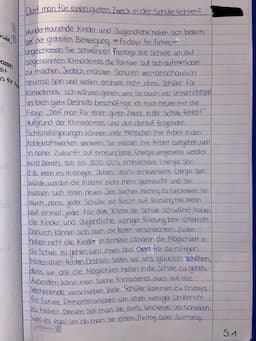 Darf man für einen guten Zweck in der Schule fehlen?
Hunderttausende Kinder und Jugendliche haben sich bereits
bei der globalen Bewegung „Fridays for Future"
angeschlossen. Sie schwänzen Freitags die Schule um auf
sogenannten Klimademos die Politiker auf sich aufmerksam
zu machen. Jedoch müssen Schulen weltanschaulich
neutral sein und wollen deshalb nicht, dass Schüler für
Klimademos schwänzen gehen, weil sie auch viel Unterrichtsstoff
verlieren. Deshalb beschäftige ich mich heute mit der
Frage „Darf man für einen guten Zweck in der Schule fehlen?"
Aufgrund der Klimademos und den darauf folgenden
Schlussfolgerungen können viele Menschen ihre Arbeit in den
Kohlekraftwerken verlieren. Sie müssen ihre Arbeit aufgeben, weil
in naher Zukunft auf erneuerbare Energie umgestellt werden
wird. Bereits soll bis 2030 65% erneuerbare Energie sein.
Z.B. wenn es in einigen Jahren 100% erneuerbare Energie sein
würde, würden die Arbeiter nicht mehr gebraucht und sie
müssten sich einen neuen Job suchen. Wichtig zu bedenken ist
auch, dass jeder Schüler ein Recht auf Bildung hat. Wenn
auf einmal jeder für das Klima die Schule schwänzt, haben
die Kinder und Jugendliche weniger Bildung bzw. Unterricht.
Dadurch können sich auch die Noten verschlechtern. Zudem
haben nicht alle Kinder in armen Ländern die Möglichkeit in
die Schule zu gehen, weil ihnen das Geld für die nötigen
Materialien fehlen. Deshalb sollen wir uns glücklich schätzen,
dass wir alle die Möglichkeit haben in die Schule zu gehen.
Außerdem kann man solche Klimademos auch auf das
Wochenende verschieben. Viele Schüler kommen zu Fridays
for Future Demonstrationen um einen weniger Unterricht
zu haben. Darum soll man sie aufs Wochende verschieben
weil es egal ist ob man an einem Freitag oder Samstag
S1